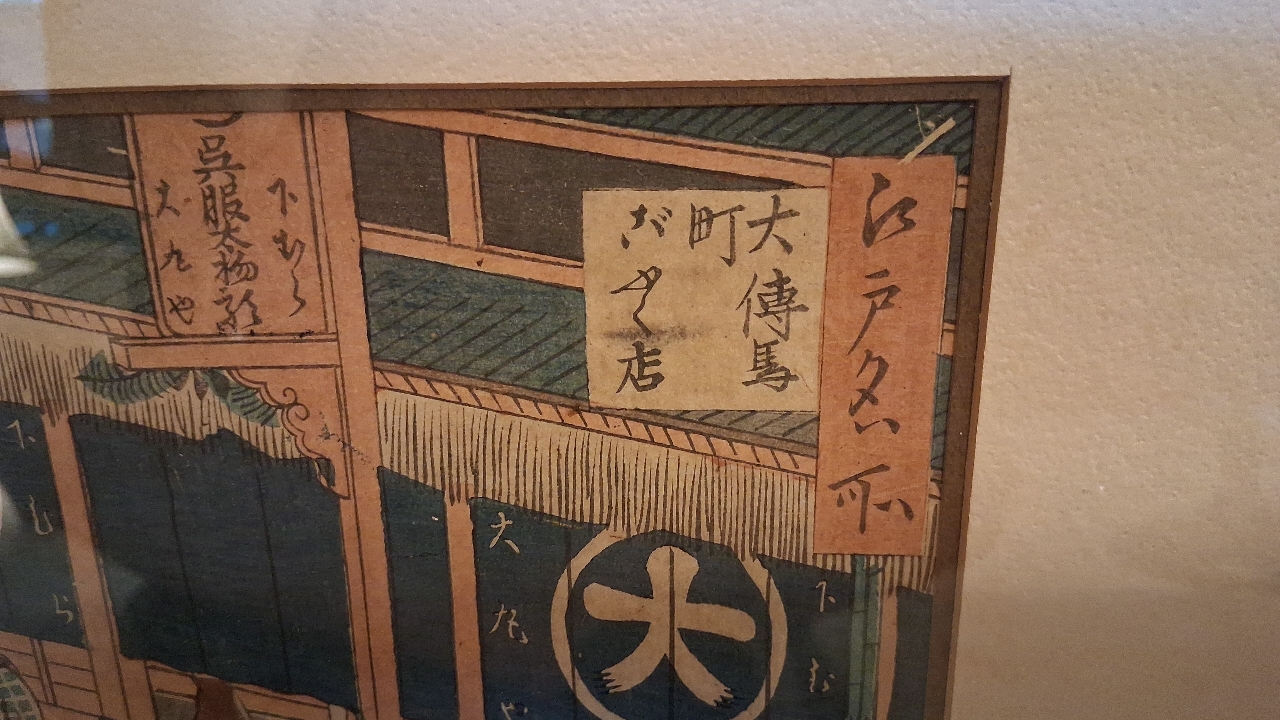 江戸名所
大傳馬
町
ごふく店
下むら
呉服太物類
大丸や
下むら
大
大丸や
下む